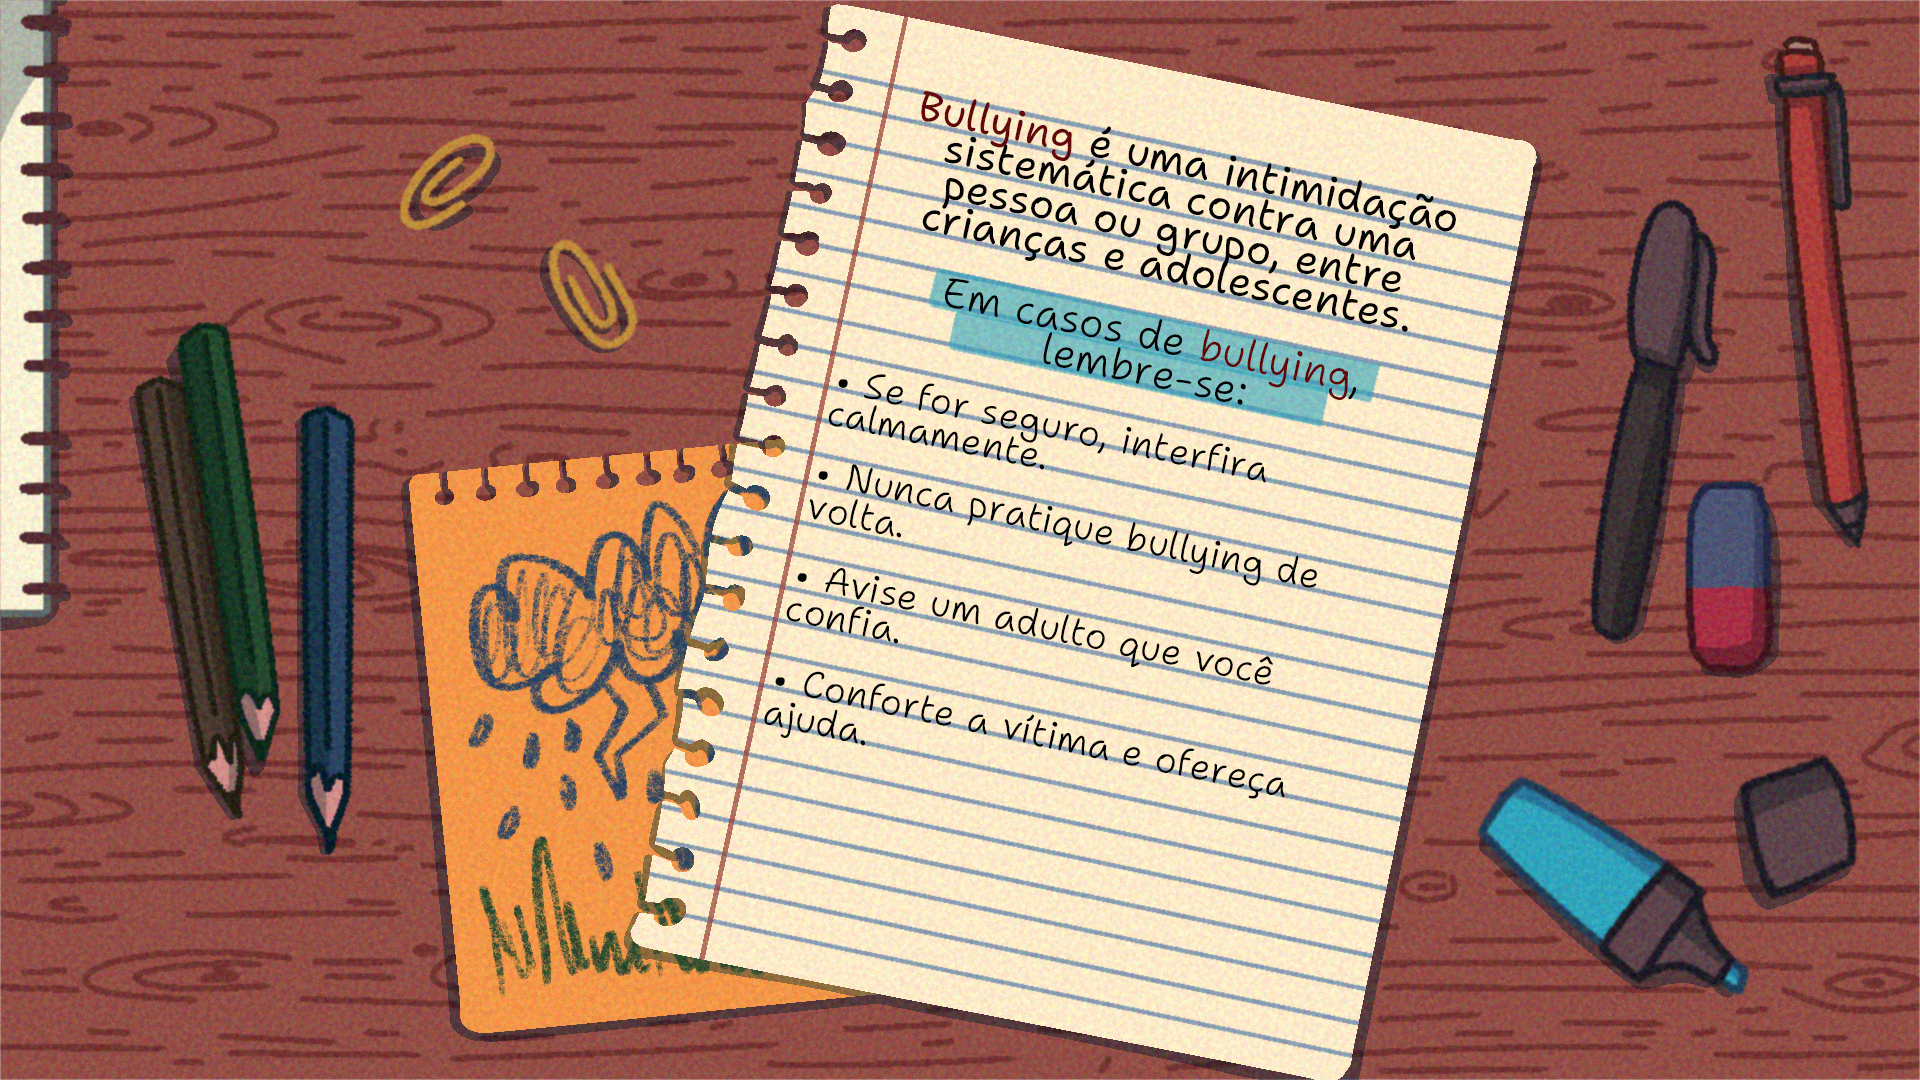 Bullying é uma intimidação
sistemática contra uma
pessoa ou grupo, entre
crianças e adolescentes.
Em casos de bullying,
lembre-se:
• Se for seguro, interfira
calmamente.
• Nunca pratique bullying de
volta.
• Avise um adulto que você
confia.
• Conforte a vítima e ofereça
ajuda.